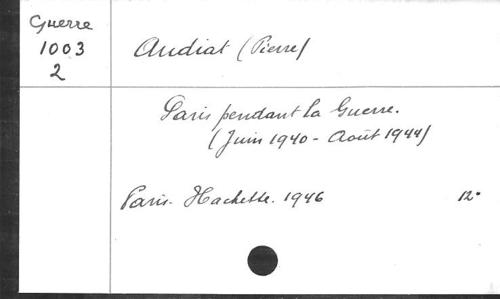 Guerre
1003
2
Audiat (Pierre)
Paris pendant la Guerre.
(Juin 1940 - Août 1944)
Paris. Hachette. 1946 12°